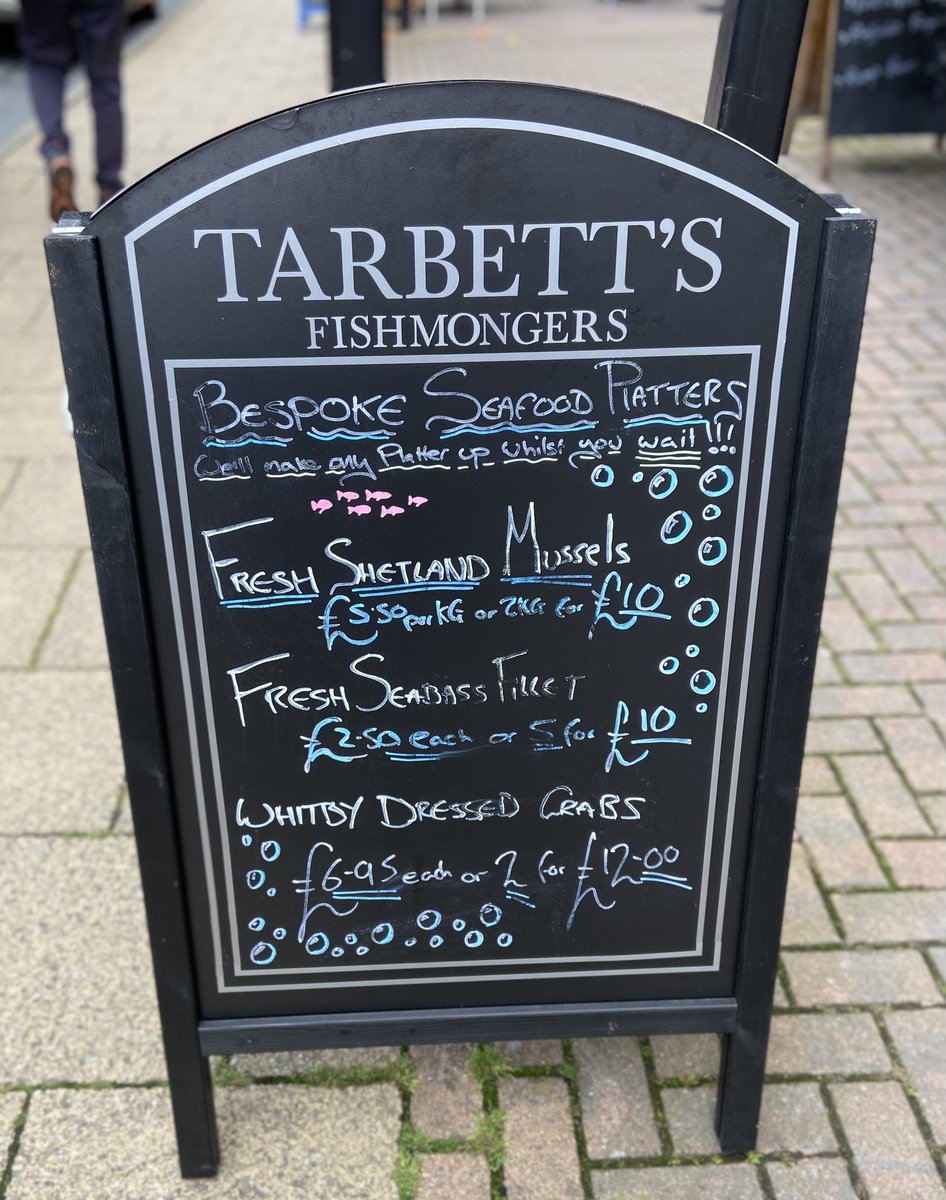 TARBETT'S
FISHMONGERS
BESPOKE SEAFOOD PLATTERS
We'll make any Platter up whilst you wait!!!
FRESH SHETLAND MUSSELS
£5.50 per KG or 2KG for £10
FRESH SEABASS FILLET
£2.50 each or 5 for £10
WHITBY DRESSED CRABS
£6-95 each or 2 for £12-00